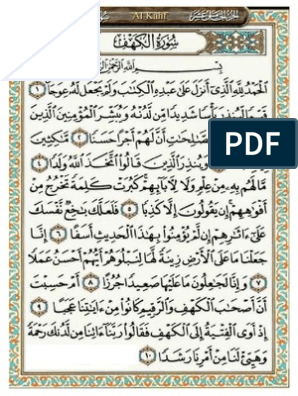 Al-Kahf
سُورَةُ الكَهْفِ
الْحَمْدُ لِلَّهِ الَّذِي أَنزَلَ عَلَىٰ عَبْدِهِ الْكِتَابَ وَلَمْ يَجْعَل لَّهُ عِوَجَا ۜ ١
قَيِّمًا لِّيُنذِرَ بَأْسًا شَدِيدًا مِّن لَّدُنْهُ وَيُبَشِّرَ الْمُؤْمِنِينَ الَّذِينَ
الصَّالِحَاتِ أَنَّ لَهُمْ أَجْرًا حَسَنًا ٢ مَّاكِثِينَ
وَيُنذِرَ الَّذِينَ قَالُوا اتَّخَذَ اللَّهُ وَلَدًا ٤
PDF
مَّا لَهُم بِهِ مِنْ عِلْمٍ وَلَا لِآبَائِهِمْ ۚ كَبُرَتْ كَلِمَةً تَخْرُجُ مِنْ
أَفْوَاهِهِمْ ۚ إِن يَقُولُونَ إِلَّا كَذِبًا ٥ فَلَعَلَّكَ بَاخِعٌ نَّفْسَكَ
عَلَىٰ آثَارِهِمْ إِن لَّمْ يُؤْمِنُوا بِهَٰذَا الْحَدِيثِ أَسَفًا ٦ إِنَّا
جَعَلْنَا مَا عَلَى الْأَرْضِ زِينَةً لَّهَا لِنَبْلُوَهُمْ أَيُّهُمْ أَحْسَنُ عَمَلًا
٧ وَإِنَّا لَجَاعِلُونَ مَا عَلَيْهَا صَعِيدًا جُرُزًا ٨ أَمْ حَسِبْتَ
أَنَّ أَصْحَابَ الْكَهْفِ وَالرَّقِيمِ كَانُوا مِنْ آيَاتِنَا عَجَبًا ٩
إِذْ أَوَى الْفِتْيَةُ إِلَى الْكَهْفِ فَقَالُوا رَبَّنَا آتِنَا مِن لَّدُنكَ رَحْمَةً
وَهَيِّئْ لَنَا مِنْ أَمْرِنَا رَشَدًا ١٠